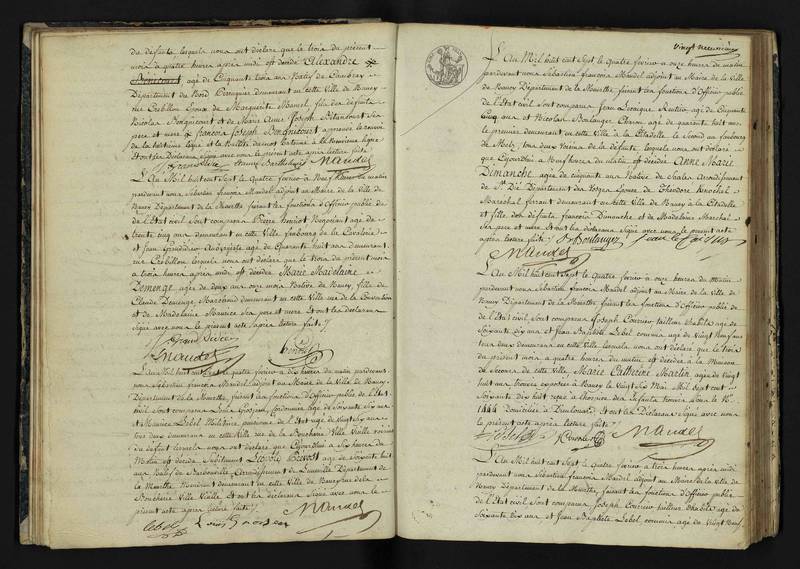 du défunt lesquels nous ont déclaré que le trois du présent
mois à quatre heures après midi est décédé Alexandre
agé de Cinquante trois ans Natif de Cambray
Département du Nord Perruquier demeurant en cette Ville de Nancy
rue Crébillon Epoux de Marguerite Mansel, fils des défunts
Nicolas et de Marie Anne Joseph Bétancourt Ses
père et mere & françois Joseph approuvé la renvoi
de la huitieme ligne et la Nullité du mot
Et ont les déclarans signé avec nous le présent acte après lecture faite
Mandel
L'An Mil huit cent Sept le Quatre fevrier à Neuf heures du matin
pardevant nous Sébastien françois Mandel adjoint au Maire de la Ville de
Nancy Département de la Meurthe faisant les fonctions d'Officier public de
l'Etat civil Sont comparus Pierre Negociant agé de
trente cinq ans demeurant en cette Ville faubourg de
et Jean Grandidier Aubergiste agé de Quarante huit ans demeurant
rue Crébillon lesquels nous ont déclaré que le trois du présent mois
à trois heures après midi est décédée Marie Madelaine
Demenge agée de deux ans onze mois Native de Nancy, fille de
Claude Demenge Marchand demeurant en cette Ville rue de la
et de Madelaine Maurice Ses pere et mere Et ont les déclarans
Signé avec nous le présent acte après lecture faite
Mandel
L'An Mil huit cent Sept le quatre fevrier à dix heures du matin pardevant
nous Sébastien françois Mandel adjoint au Maire de la Ville de Nancy,
Département de la Meurthe, faisant les fonctions d'Officier public de l'Etat
civil Sont comparus Louis Cordonnier agé de Soixante Six ans
et Maurice de l'Etat agé de Vingt Six ans
tous deux demeurant en cette Ville rue de la Boucherie Ville Vieille voisins
du défunt lesquels nous ont déclaré que Cejourd'hui à Six heures du
Matin est décédé Subitement Léopold Prevost agé de Soixante huit
ans Natif de Arrondissement de Lunéville Département de
la Meurthe demeurant en cette Ville de Nancy rue de la
Boucherie Ville Vieille Et ont les déclarans Signé avec nous le
présent acte après lecture faite
Lebel Mandel
Vingt neuvieme
L'An Mil huit cent Sept le Quatre fevrier à onze heures du matin
pardevant nous Sébastien françois Mandel adjoint au Maire de la Ville
de Nancy Département de la Meurthe, faisant les fonctions d'Officier public
de l'Etat civil Sont comparus Jean agé de Cinquante
Cinq ans et Nicolas Boulanger Charon agé de quarante huit ans
le premier demeurant en cette Ville à la Citadelle le Second au faubourg
de Metz tous deux Voisins de la défunte lesquels nous ont déclaré
que Cejourd'hui à Neuf heures du matin est décédée Anne Marie
Demanche agée de Cinquante ans Native de Saales Arrondissement
de St. Dié Département des Vosges Epouse de Théodore
Marechal ferrant demeurant en cette Ville de Nancy à la Citadelle
et fille des défunts françois Dimanche et de Madelaine Marchal
Ses pere et mere Et ont les déclarans Signé avec nous le présent acte
après lecture faite Boulanger
Mandel
L'An Mil huit cent Sept le Quatre fevrier à onze heures du Matin
pardevant nous Sébastien françois Mandel adjoint au Maire de la Ville de
Nancy Département de la Meurthe faisant les fonctions d'Officier public de
l'Etat civil, Sont comparus Joseph tailleur d'habits agé de
Soixante dix ans et Jean Baptiste Lebel commis agé de Vingt Neuf ans
tous deux demeurant en cette Ville Lesquels nous ont déclaré que le trois
du présent mois à quatre heures du matin est décédée à la Maison
de Secours de cette Ville, Marie Catherine Martin agée de Vingt
huit ans trouvée exposée à Nancy le Vingt Six Mai Mil Sept cent
Soixante dix huit reçue à l'hospice des Enfans trouvés Sous le No.
1444 Domiciliée à Dieulouard Et ont les Déclarans Signé avec nous
le présent acte après lecture faite
Lebel Mandel
L'An Mil huit cent Sept le Quatre fevrier à trois heures après midi
pardevant nous Sébastien françois Mandel adjoint au Maire de la Ville de
Nancy Département de la Meurthe, faisant les fonctions d'Officier public
de l'Etat civil Sont comparus Joseph tailleur d'habits agé de
Soixante dix ans et Jean Baptiste Lebel commis agé de Vingt Neuf